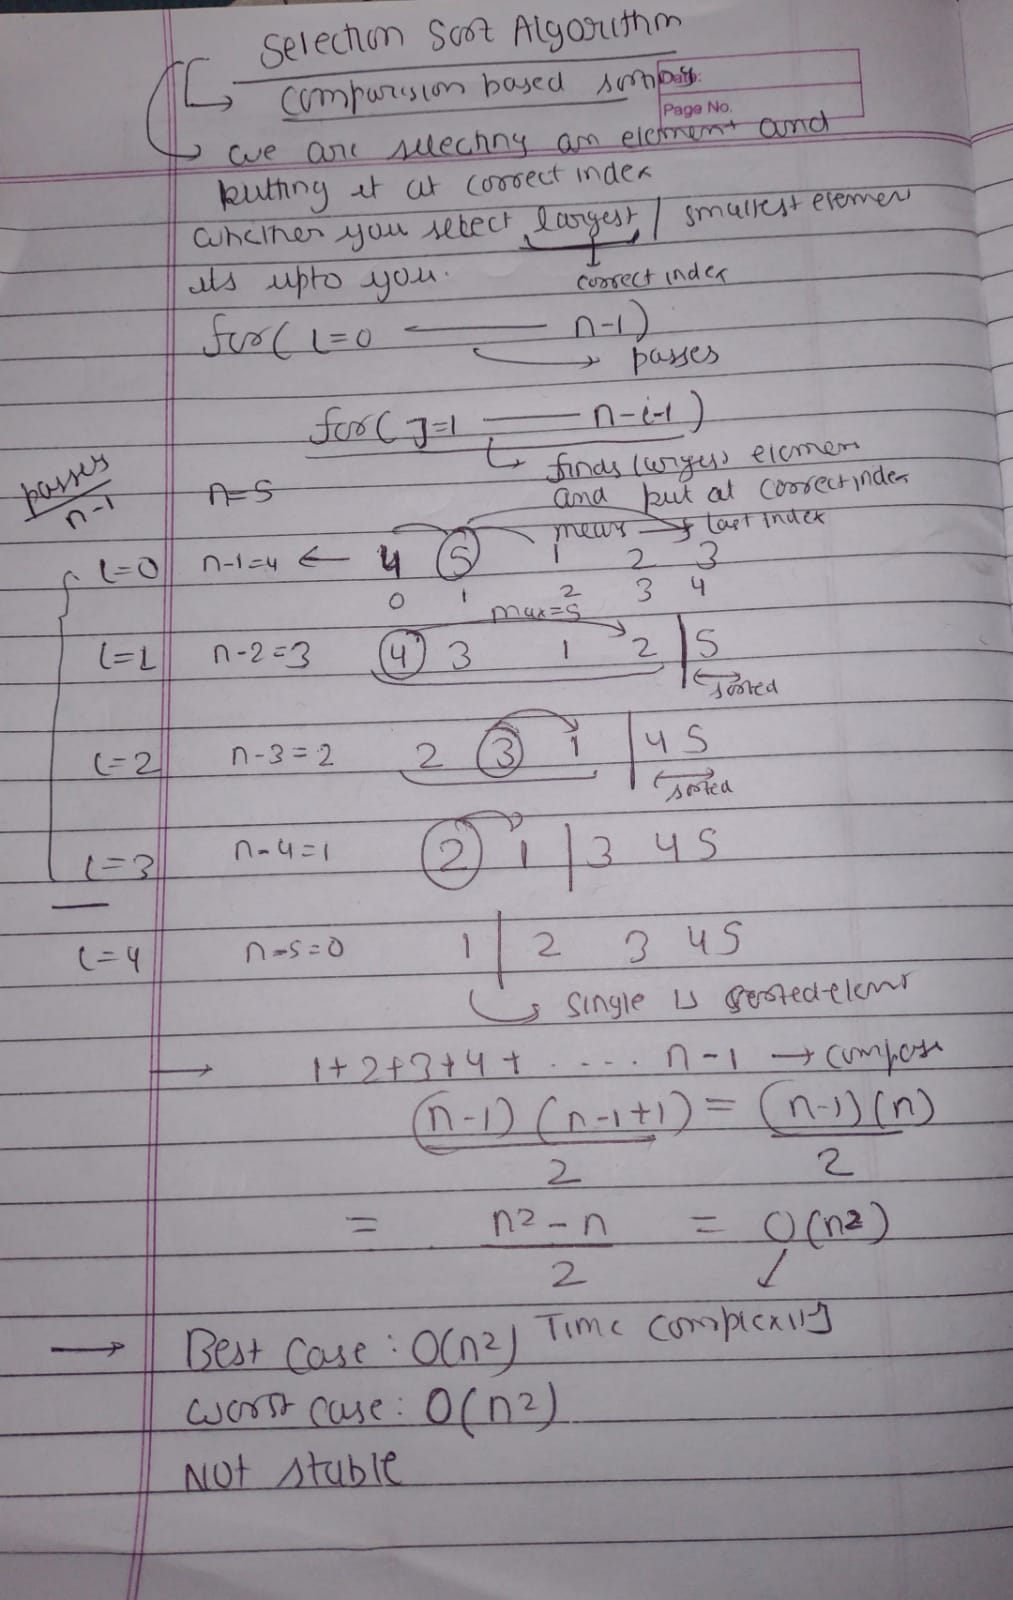 Selection Sort Algorithm
Comparision based sorting
Date:
Page No.
we are selecting an element and
putting it at correct index
whether you select largest / smallest elemen
its upto you.
correct index
for( i=0 —— n-1)
passes
for( J=1 —— n-i-1)
finds larges elemen
and put at correct index
means → last index
passes
n-1
n=5
i=0 n-1=4 ← 4 5 1 2 3
0 1 2 3 4
max=5
i=1 n-2=3 4 3 1 2 | 5
sorted
i=2 n-3=2 2 3 1 | 4 5
sorted
i=3 n-4=1 2 1 | 3 4 5
i=4 n-5=0 1 | 2 3 4 5
single is sorted
→ 1+2+3+4+ ..... n-1 →
(n-1) (n-1+1) = (n-1)(n)
2 2
= n2-n = O(n2)
2
Time complexity
→ Best Case: O(n2)
worst case: O(n2)
Not stable